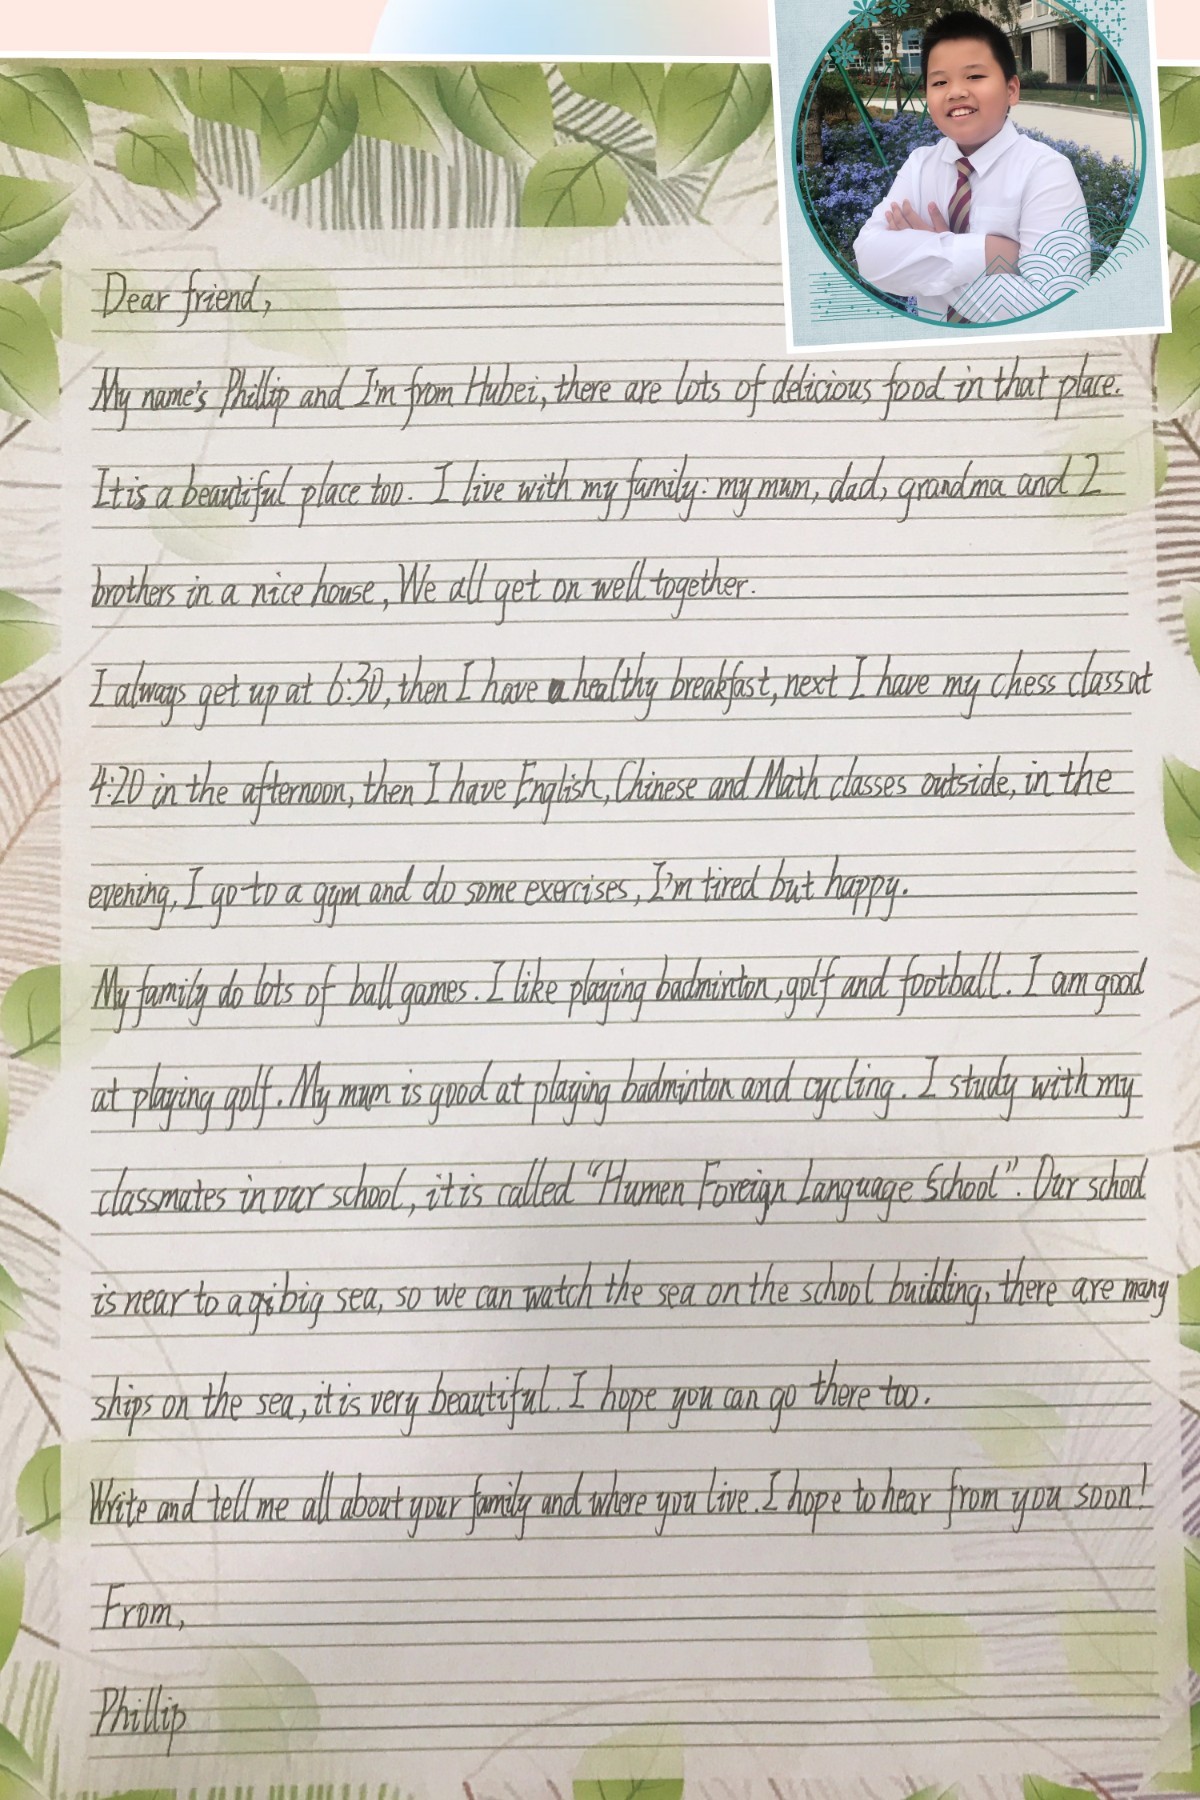 Dear friend,
My name's Phillip and I'm from Hubei, there are lots of delicious food in that place.
It is a beautiful place too. I live with my family: my mum, dad, grandma and 2
brothers in a nice house, We all get on well together.
I always get up at 6:30, then I have a healthy breakfast, next I have my chess class at
4:20 in the afternoon, then I have English, Chinese and Math classes outside, in the
evening, I go to a gym and do some exercises, I'm tired but happy.
My family do lots of ball games. I like playing badminton, golf and football. I am good
at playing golf. My mum is good at playing badminton and cycling. I study with my
classmates in our school, it is called "Humen Foreign Language School". Our school
is near to a big sea, so we can watch the sea on the school building, there are many
ships on the sea, it is very beautiful. I hope you can go there too.
Write and tell me all about your family and where you live. I hope to hear from you soon!
From,
Phillip